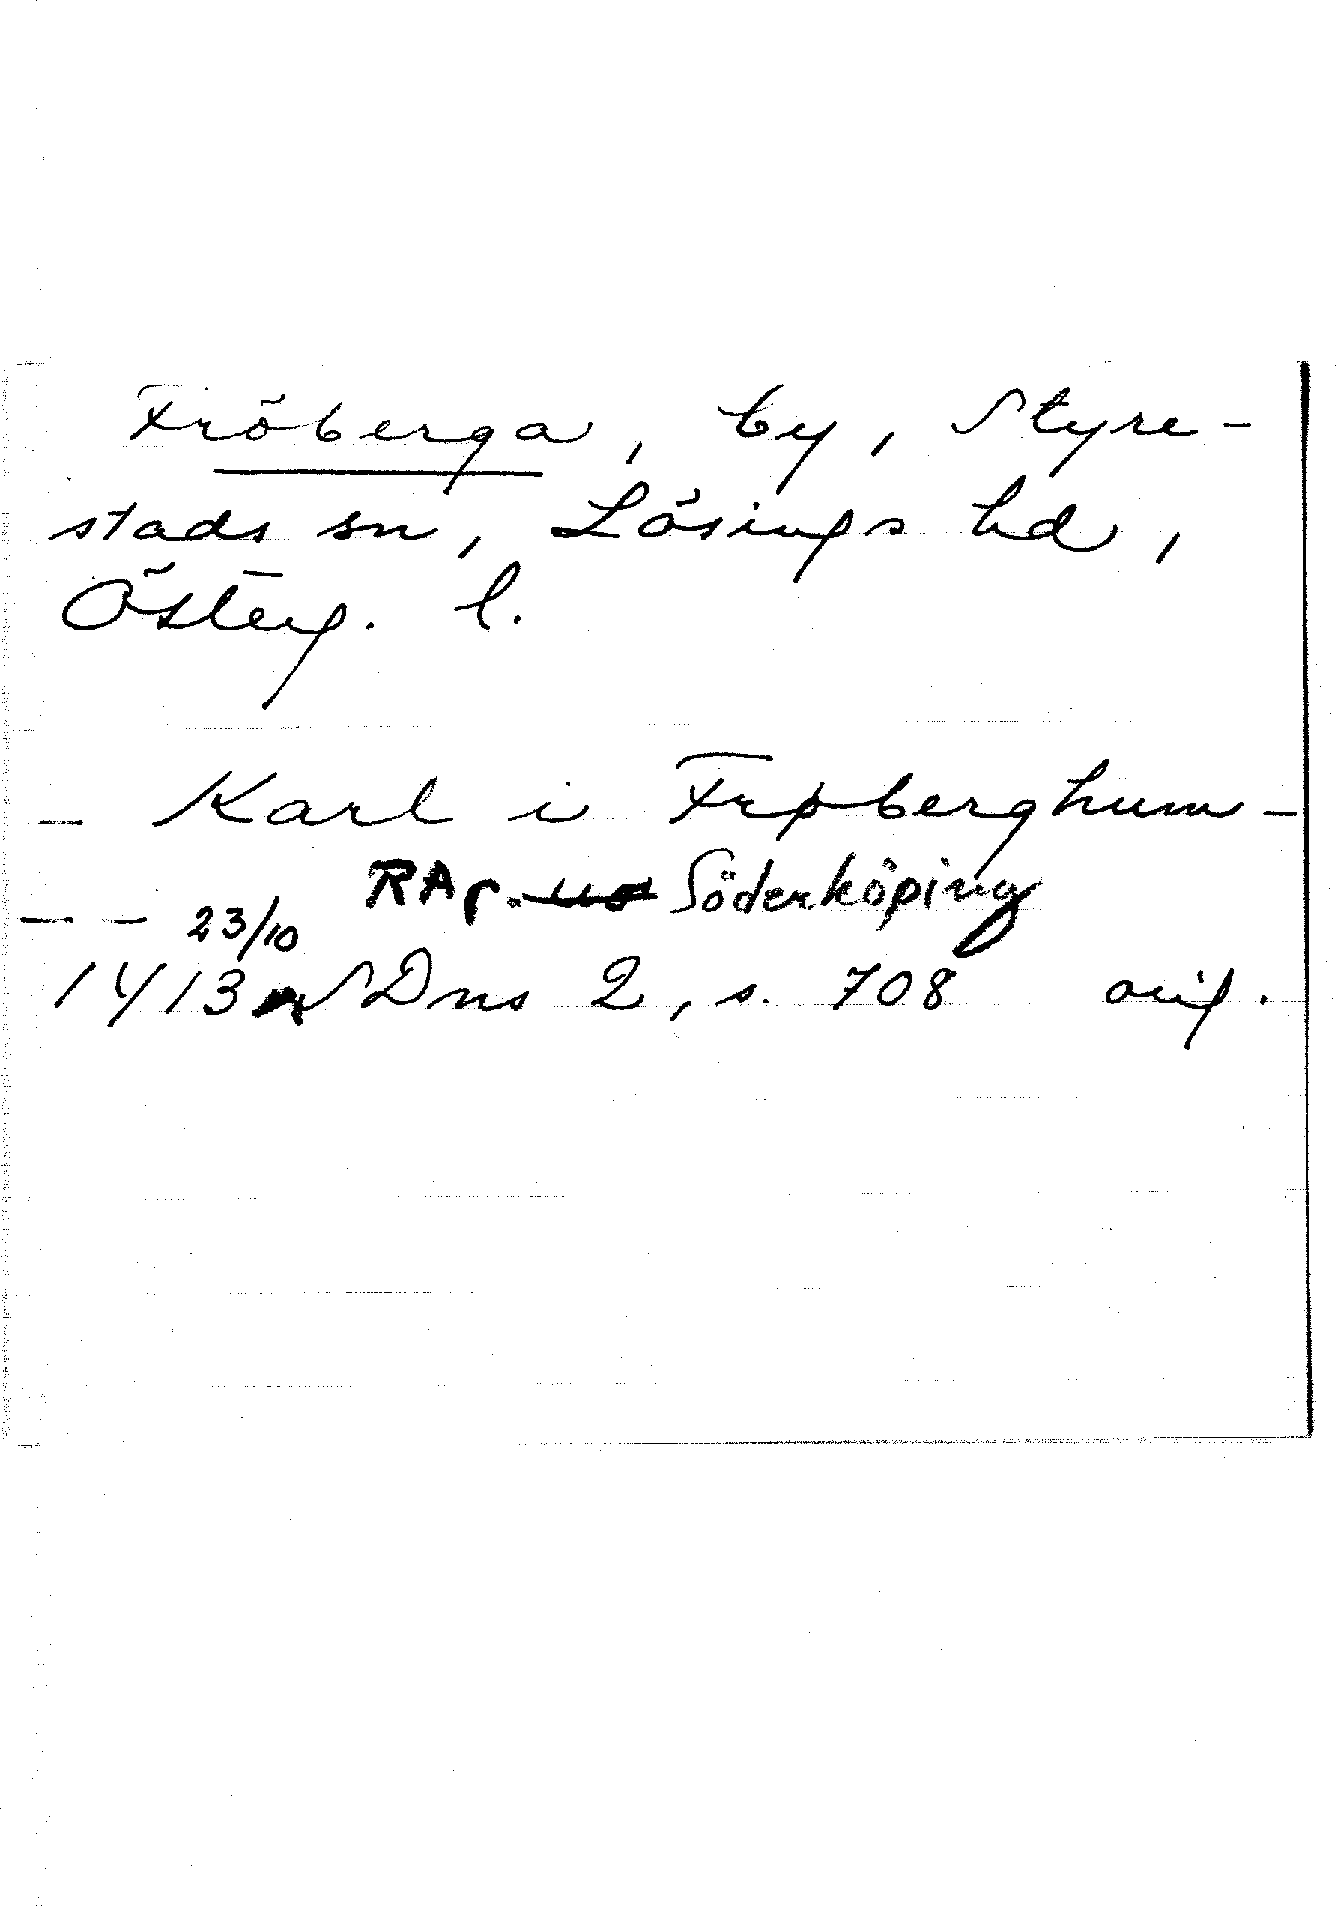 Fröberga, by, Styre-
stads sn, Lösings hd,
Österg. l.
– Karl i Frøberghum –
RAp. Söderköping
– – 23/10
1413 SDns 2, s. 708 orig.